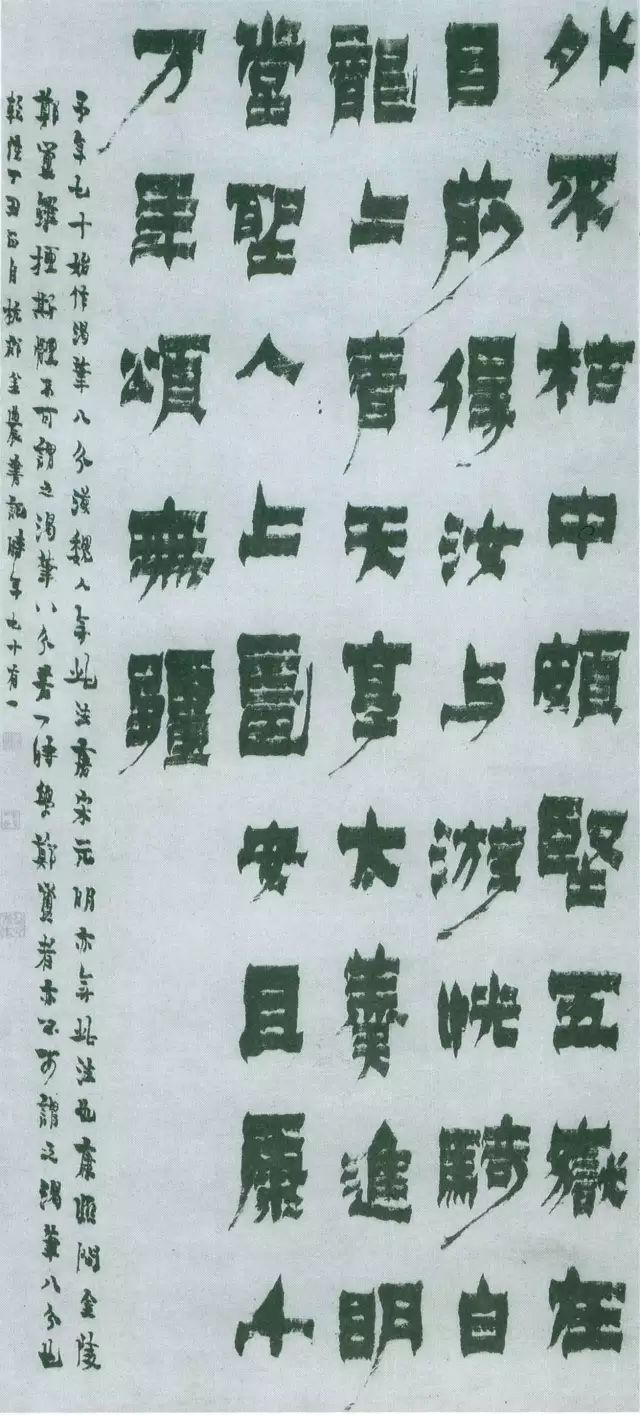 外不枯中頗堅五嶽在
目前得汝与游恍騎白
龍上青天享太羹進明
堂聖人上圖安且康千
万年頌無疆
予年七十始作渴筆八分漢魏人無此法唐宋元明亦無此法也康熙間金陵
鄭簠雖擅斯體不可謂之渴筆八分一時學鄭簠者亦不可謂之渴筆八分也
乾隆丁丑月杭郡金農記時年七十有一